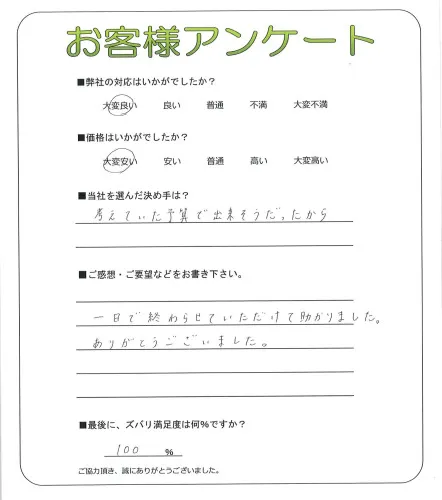 お客様アンケート
■弊社の対応はいかがでしたか?
大変良い 良い 普通 不満 大変不満
■価格はいかがでしたか?
大変安い 安い 普通 高い 大変高い
■当社を選んだ決め手は?
考えていた予算で出来そうだったから
■ご感想・ご要望などをお書き下さい。
一日で終わらせていただけて助かりました。
ありがとうございました。
■最後に、ズバリ満足度は何%ですか?
100 %
ご協力頂き、誠にありがとうございました。